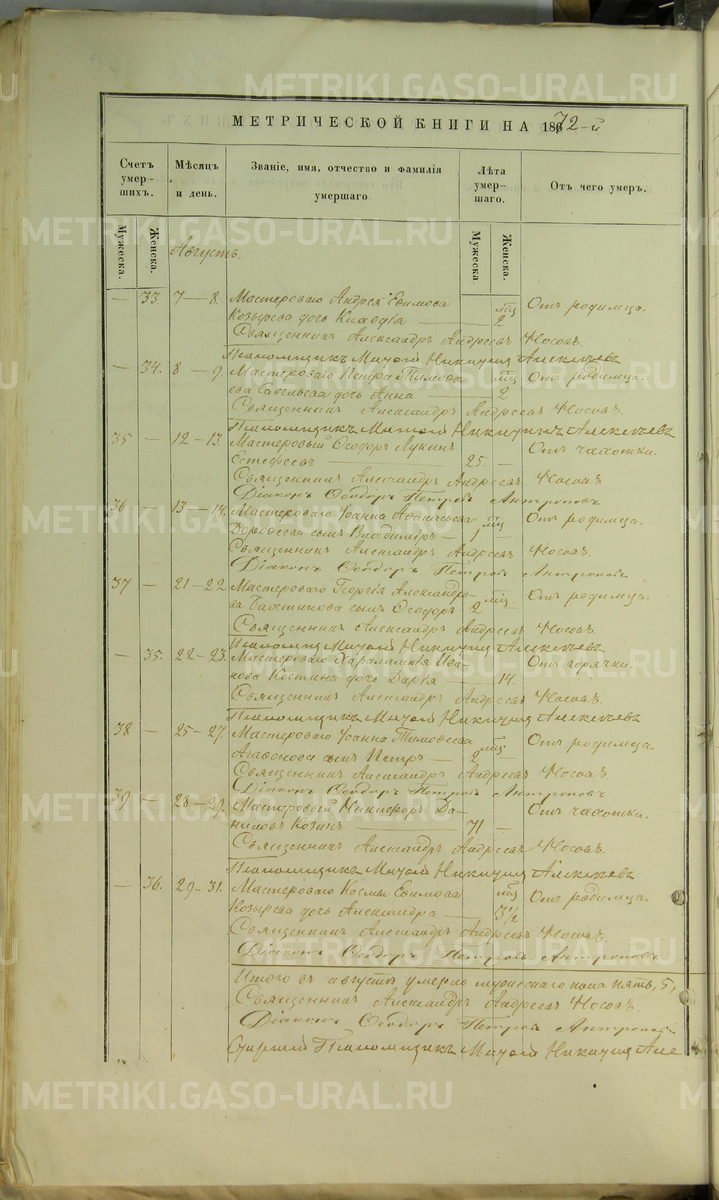 МЕТРИЧЕСКОЙ КНИГИ НА 1872-й
Счетъ умерших. Мѣсяцъ и день. Званіе, имя, отчество и фамилія умершаго Лѣта умершаго. Отъ чего умеръ.
Мужеска. Женска. Мужеска. Женска.
Августъ.
— 33. 7—8. Мастероваго Андрея Евимова мц Отъ родимца.
Козырева дочь Клавдія — 2
Священникъ Александръ Андреевъ Носовъ.
Псаломщикъ Никиѳоръ Алексѣевъ
— 34. 8—9. Мастероваго Петра мц Отъ родимца.
Савельева дочь Анна — 2
Священникъ Александръ Андреевъ Носовъ.
Псаломщикъ Алексѣевъ
35 — 12—13. Мастеровый Ѳеодоръ Лукинъ Отъ чахотки.
Естефеевъ — 25. —
Священникъ Александръ Андреевъ Носовъ
Діаконъ Ѳеодоръ Петровъ Антроповъ
36 — 13—14. Мастероваго Іоанна мц Отъ родимца.
сынъ Владиміръ — 1 —
Священникъ Александръ Андреевъ Носовъ.
Діаконъ Ѳеодоръ Петровъ Антроповъ
37 — 21—22 Мастероваго Георгія Александро- мц Отъ родимца.
ва сынъ Ѳеодоръ 2
Священникъ Александръ Андреевъ Носовъ
Псаломщикъ Алексѣевъ
— 35. 22—23. Мастероваго Харалампія Ива- Отъ горячки.
нова Костина дочь Дарья — 14.
Священникъ Александръ Андреевъ Носовъ.
Псаломщикъ Алексѣевъ
38 — 25—27 Мастероваго Іоанна Тимоѳеева мц Отъ родимца.
Агафонова сынъ Петръ — 2 —
Священникъ Александръ Андреевъ Носовъ.
Діаконъ Ѳеодоръ Петровъ Антроповъ
39 — 28—29. Мастеровый Никифоръ Да- Отъ чахотки.
ниловъ Козинъ — 71 —
Священникъ Александръ Андреевъ Носовъ.
Псаломщикъ Алексѣевъ
— 36. 29—31. Мастероваго Космы Евимова мц Отъ родимца.
Козырева дочь Александра — 3½
Священникъ Александръ Андреевъ Носовъ.
Діаконъ Ѳеодоръ Петровъ Антроповъ
Итого въ августѣ умерло мужескаго пола пять, 5,
Священникъ Александръ Андреевъ Носовъ.
Діаконъ Ѳеодоръ Петровъ Антроповъ
Старшій Псаломщикъ Але
METRIKI.GASO-URAL.RU